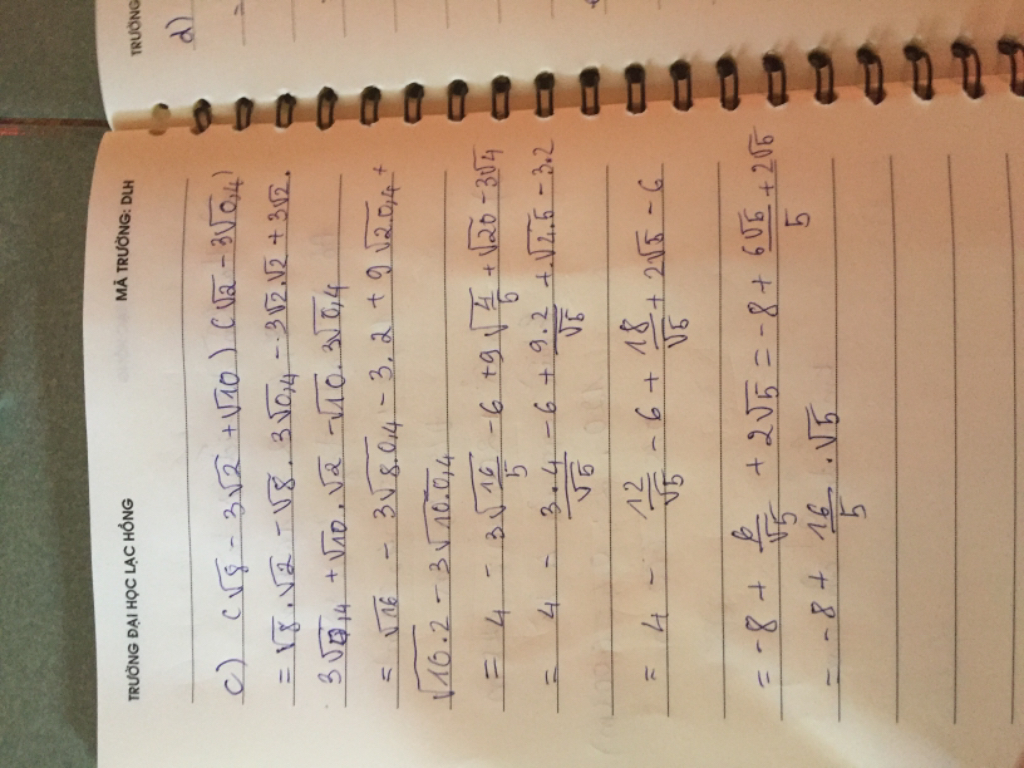 TRƯỜNG ĐẠI HỌC LẠC HỒNG MÃ TRƯỜNG: DLH
c) (√8 - 3√2 + √10) (√2 - 3√0,4)
= √8.√2 - √8.3√0,4 - 3√2.√2 + 3√2.
3√0,4 + √10.√2 - √10.3√0,4
= √16 - 3√8.0,4 - 3.2 + 9√2.0,4 +
√10.2 - 3√10.0,4
= 4 - 3√16/5 - 6 + 9√4/5 + √20 - 3√4
= 4 - 3.4/√5 - 6 + 9.2/√5 + √4.5 - 3.2
= 4 - 12/√5 - 6 + 18/√5 + 2√5 - 6
= -8 + 6/√5 + 2√5 = -8 + 6√5/5 + 2√5
= -8 + 16/5 . √5
TRƯỜNG
d)
=